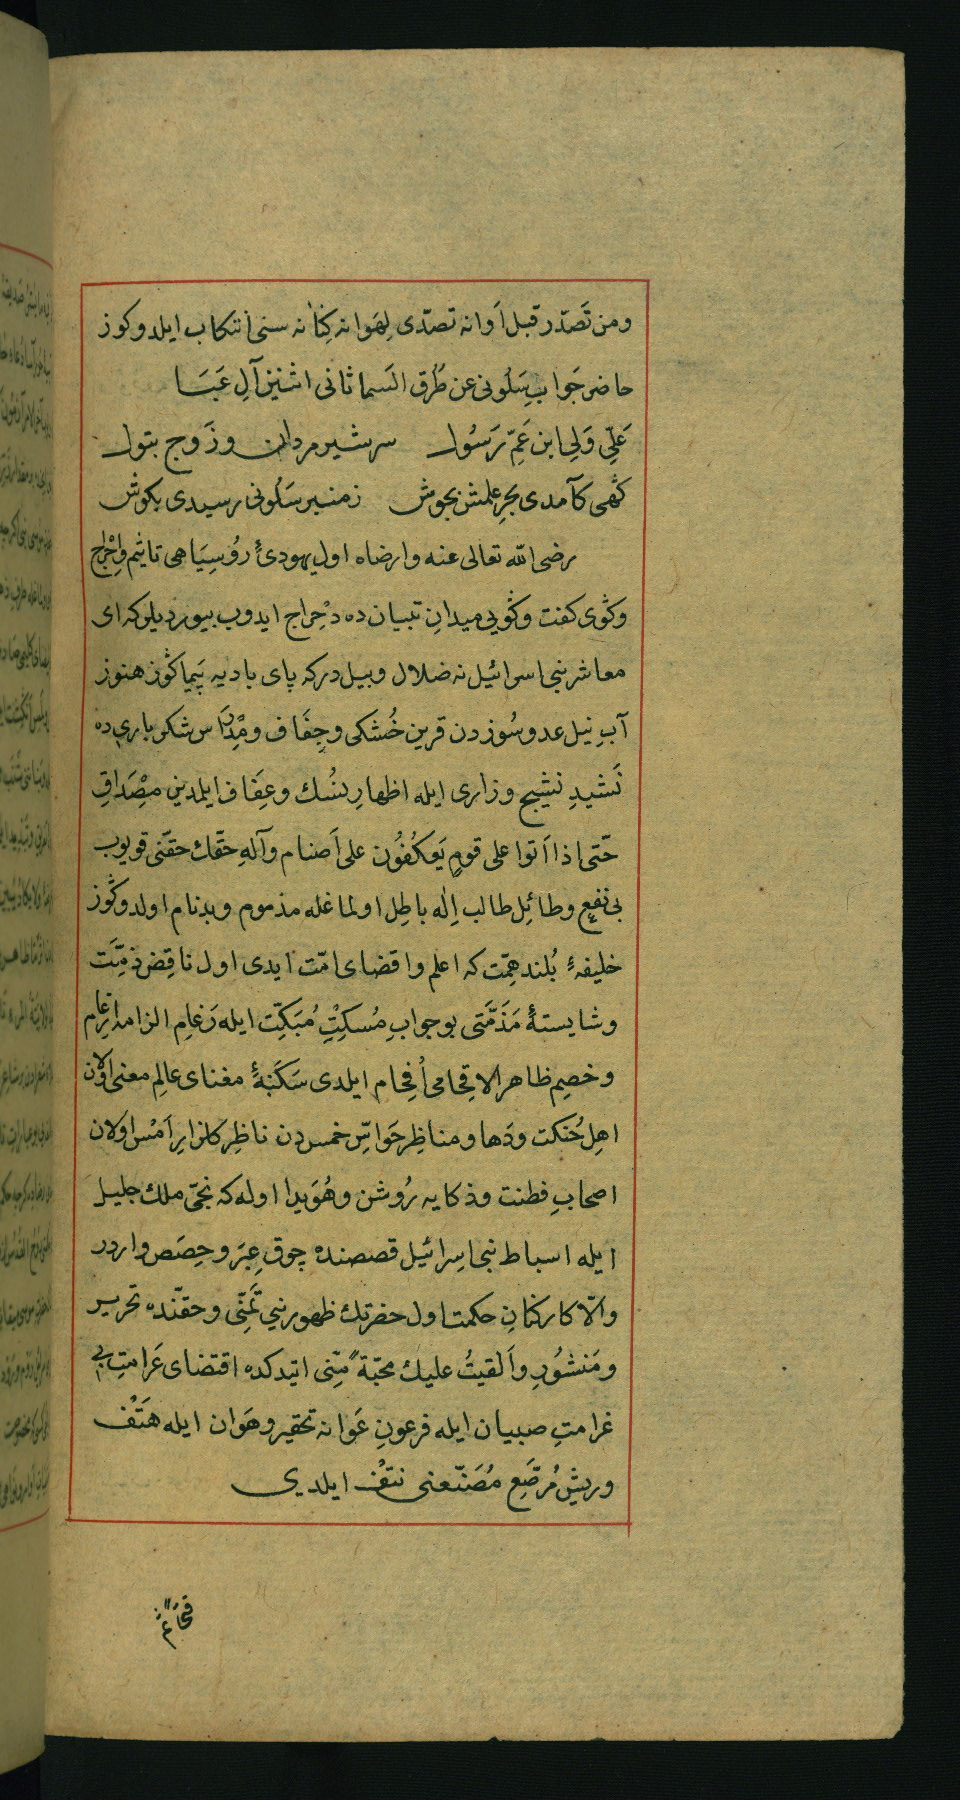 ومن تَصَدّر قبل اَوانه تصدّى لِهَوانه كِنانه سنى انتكاب ايلدوكوز
حاضر جَوابِ سَلُونى عن طُرق السَما ثانى اثنين آلِ عَبَا
عَلِّى وَلِى ابن عَمِّ رَسُول سر شير مردان وزَوج بتول
كهى كآمدى بحرِ علمش بجوش ز منبر سَلُونى رسيدى بكوش
رضى الله تعالى عنه وارضاه اول يهودىٔ رُوسِيَاهى تاشم واِحْراج
وكوى كفت وكويى ميدانِ تبيان ده دَحِراج ايدوب بيورديلركه اى
معاشر بنى اسرائيل نه ضلال وبيل دركه پاى باديه پَيماكوز هنوز
آبِ نيل عدو سُوزدن قرين خُشكى وجِفَاف ومِدْرَاس شكر بارى ده
نَشيدِ نَشيج وزارى ايله اظهارِ نسُك وعِفَاف ايلمدين مِصْدَاقِ
حتّى اذا اَتوا على قومٍ يَعكُفُون على اَصنام وآلهِ حقّك حقّنى قويوب
بى نفعٍ وطائِل طالب اِلٰه باطِل اولماغله مذموم وبدنام اولدوكوز
خليفهٔ بُلند هِمّت كه اعلم واقضاى امّت ايدى اول ناقِض ذمّت
وشايستهٔ مَذَمَّتى بو جوابِ مُسكِتِ مُبَكِّت ايله رَغامِ الزامه ارغام
وخصِيم ظاهر الاقحامى اُفحام ايلدى سَكَنهٔ مغناى عالِم معنى اولان
اهلِ حُنكت ودَها ومناظِر حَواسِّ خمس دن ناظِر كلزارِ اَمْس اولان
اصحابِ فطنت وذكايه رُوشن وهُوَيدا اوله كه نجّى ملك جليل
ايله اسباط بنى اسرائيل قصصنده چوق عِبَر وحِصَص واردر
والّا كاركنانِ حكمت اول حضرتك ظهورينى تَمَنّى وحقّنده تحرير
ومَنشُورِ واَلقيتُ عليك محبّةً مِنّى ايتدكده اقتضاى عَرامتِ بى
غرامتِ صبيان ايله فرعونِ عَوانه تحقير وهَوان ايله هَتْف
وريشِ مُرصَّعِ مُصَنّعنى نتف ايلدى